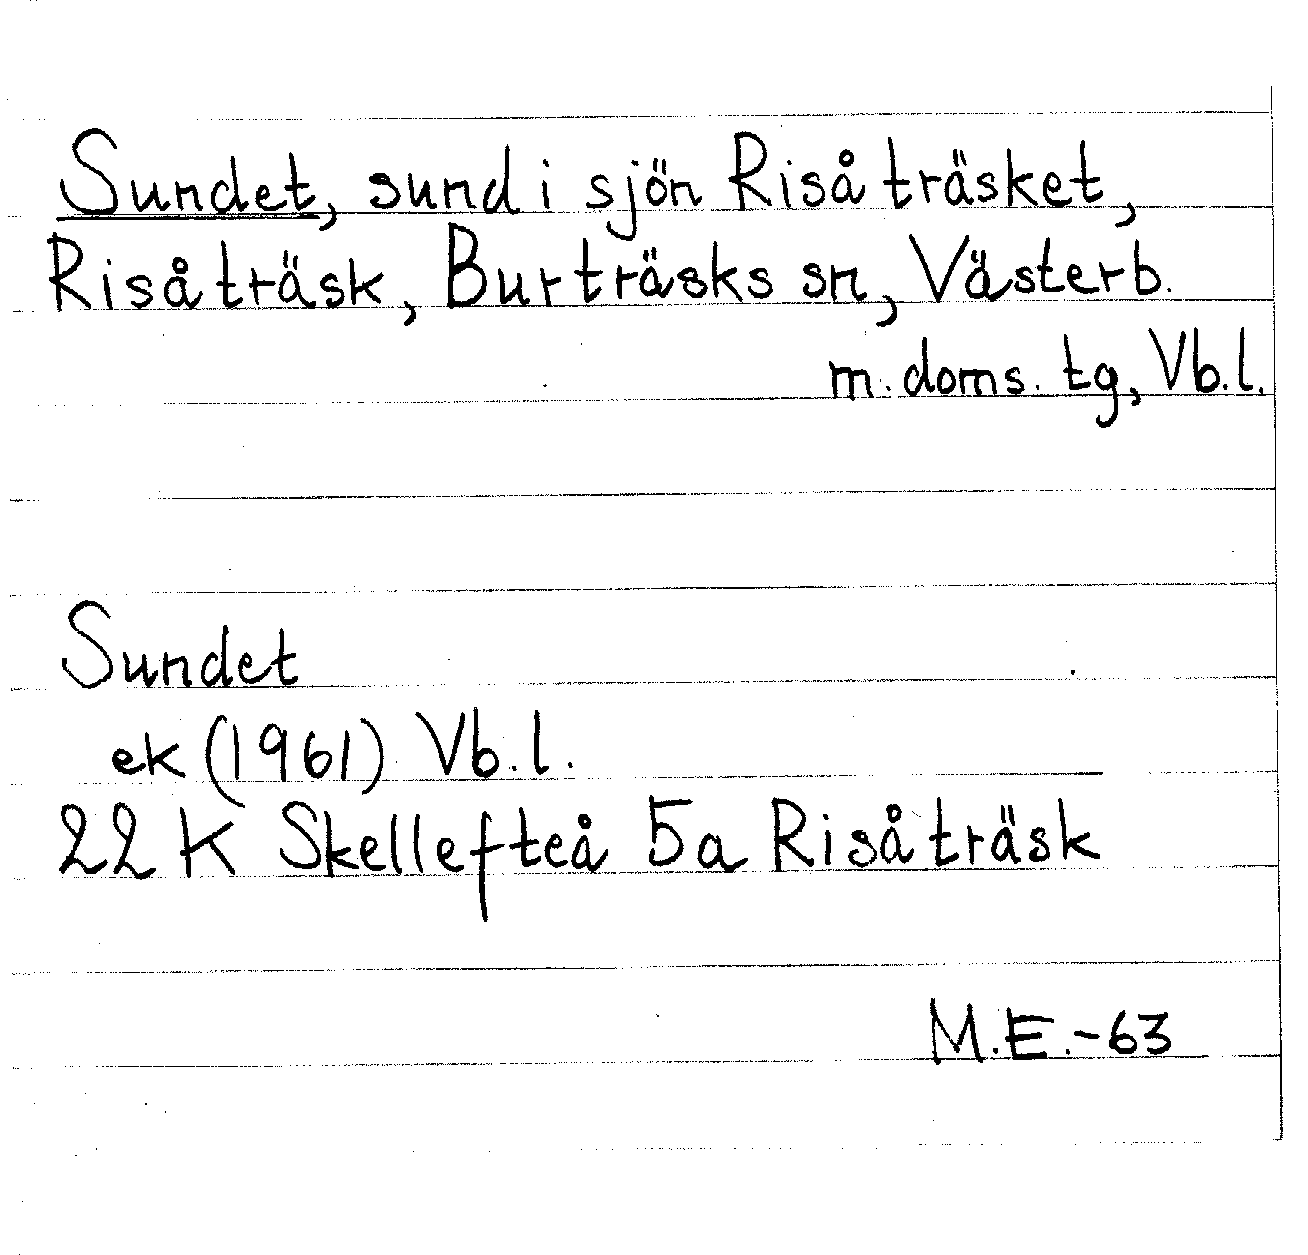 Sundet, sund i sjön Risåträsket,
Risåträsk, Burträsks sn, Västerb.
m. doms. tg, Vb.l.
Sundet
ek (1961) Vb.l.
22 K Skellefteå 5a Risåträsk
M.E.-63